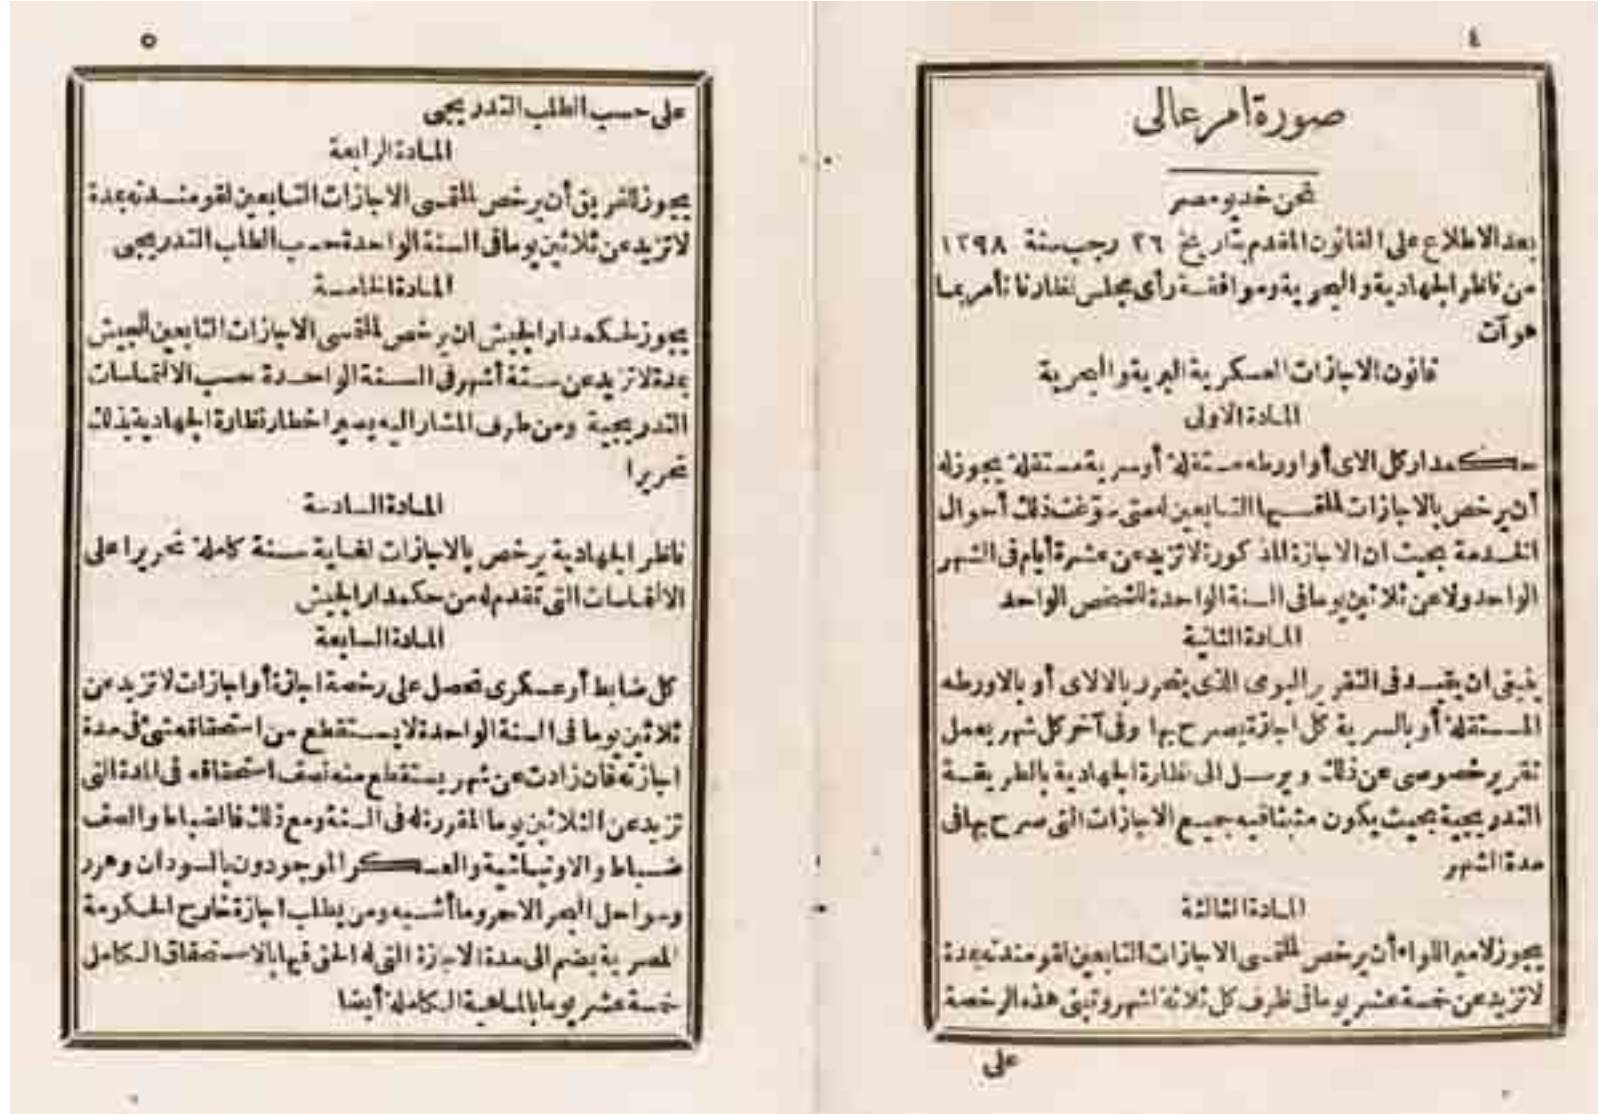 ٤
صورة أمر عالى
نحن خديو مصر
بعد الاطلاع على القانون المقدم بتاريخ ٢٦ رجب سنة ١٢٩٨
من ناظر الجهادية والبحرية وموافقة رأى مجلس نظارنا نأمر بما
هو آت
قانون الاجازات العسكرية البرية والبحرية
المادة الاولى
حكمدار كل الاى أو اورطه مستقلة أو سرية مستقلة يجوز له
أن يرخص بالاجازات لملتمسيها التابعين له متى سوّغت ذلك أحوال
الخدمة بحيث ان الاجازة المذكورة لا تزيد عن عشرة أيام فى الشهر
الواحد ولا عن ثلاثين يوما فى السنة الواحدة للشخص الواحد
المادة الثانية
ينبغى ان يقيد فى التقرير اليومى الذى يتحرر بالالاى أو بالاورطه
المستقلة أو بالسرية كل اجازة يصرح بها وفى آخر كل شهر يعمل
تقرير خصوصى عن ذلك ويرسل الى نظارة الجهادية بالطريقة
التدريجية بحيث يكون مثبتا فيه جميع الاجازات التى صرح بها فى
مدة الشهر
المادة الثالثة
يجوز لامير اللواء أن يرخص لملتمسى الاجازات التابعين لقومندته بمدة
لا تزيد عن خمسة عشر يوما فى ظرف كل ثلاثة اشهر وتبنى هذه الرخصة
على
٥
على حسب الطلب التدريجى
المادة الرابعة
يجوز للفريق أن يرخص لملتمسى الاجازات التابعين لقومندته بمدة
لا تزيد عن ثلاثين يوما فى السنة الواحدة حسب الطلب التدريجى
المادة الخامسة
يجوز لحكمدار الجيش ان يرخص لملتمسى الاجازات التابعين للجيش
بمدة لا تزيد عن ستة أشهر فى السنة الواحدة حسب الالتماسات
التدريجية ومن طرف المشار اليه يصير اخطار نظارة الجهادية بذلك
تحريرا
المادة السادسة
ناظر الجهادية يرخص بالاجازات لغاية سنة كاملة تحريرا على
الالتماسات التى تقدم له من حكمدار الجيش
المادة السابعة
كل ضابط أو عسكرى تحصل على رخصة اجازة أو اجازات لا تزيد عن
ثلاثين يوما فى السنة الواحدة لا يستقطع من استحقاقه شئ فى مدة
اجازته فان زادت عن شهر يستقطع منه نصف استحقاقه فى المدة التى
تزيد عن الثلاثين يوما المقررة له فى السنة ومع ذلك فالضباط والصف
ضباط والاونباشية والعسكر الموجودون بالسودان وهرر
وسواحل البحر الاحمر وما أشبه ومن يطلب اجازة خارج الحكومة
المصرية يضم الى مدة الاجازة التى له الحق فيها بالاستحقاق الكامل
خمسة عشر يوما بالماهية الكاملة أيضا